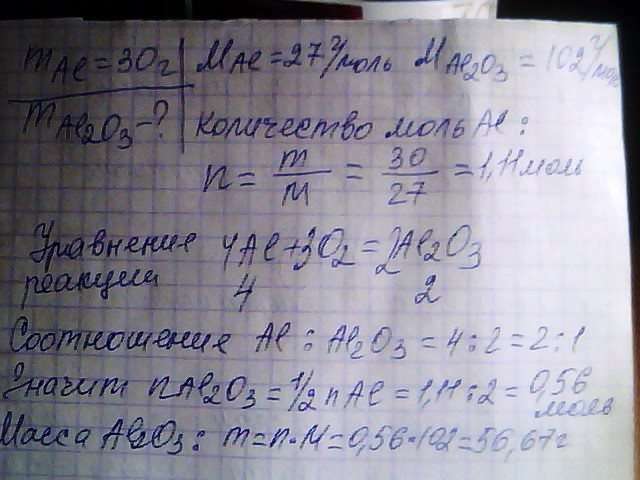 mAl = 30г MAl = 27 г/моль MAl₂O₃ = 102 г/моль
mAl₂O₃ - ? количество моль Al :
n = m/M = 30/27 = 1,11 моль
Уравнение реакции 4Al + 3O₂ = 2Al₂O₃
4 2
Соотношение Al : Al₂O₃ = 4 : 2 = 2 : 1
Значит nAl₂O₃ = 1/2 nAl = 1,11 : 2 = 0,56 моль
Масса Al₂O₃ : m = n · M = 0,56 · 102 = 56,67г